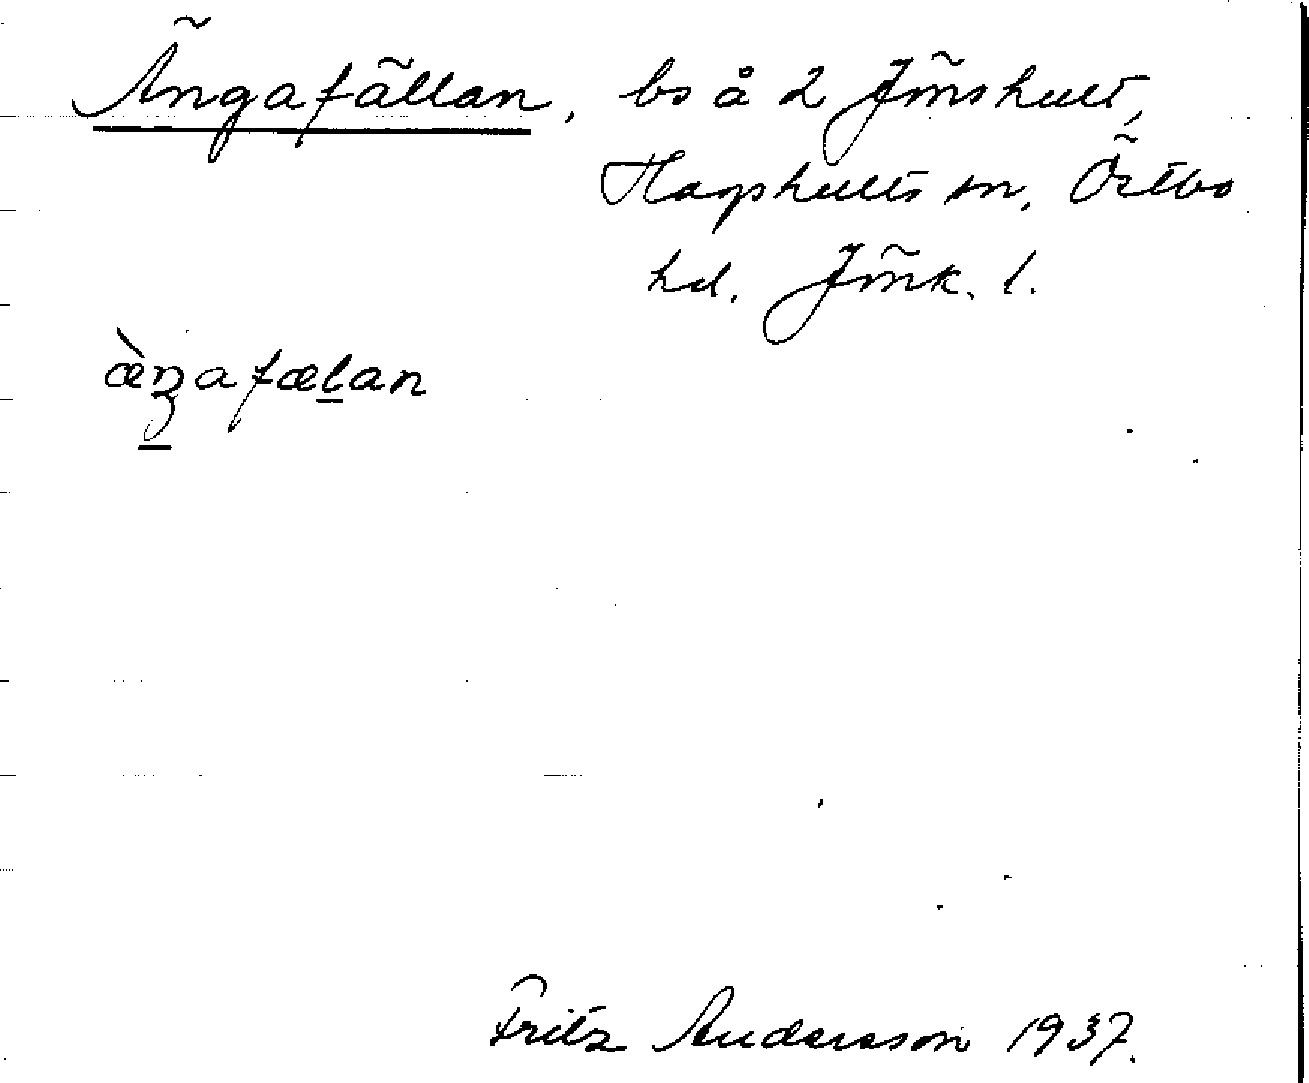 Ängafällan, bs å 2 Jönshult,
Hagshults sn, Östbo
hd. Jönk. l.
æ̀ŋafælan
Fritz Andersson 1937.